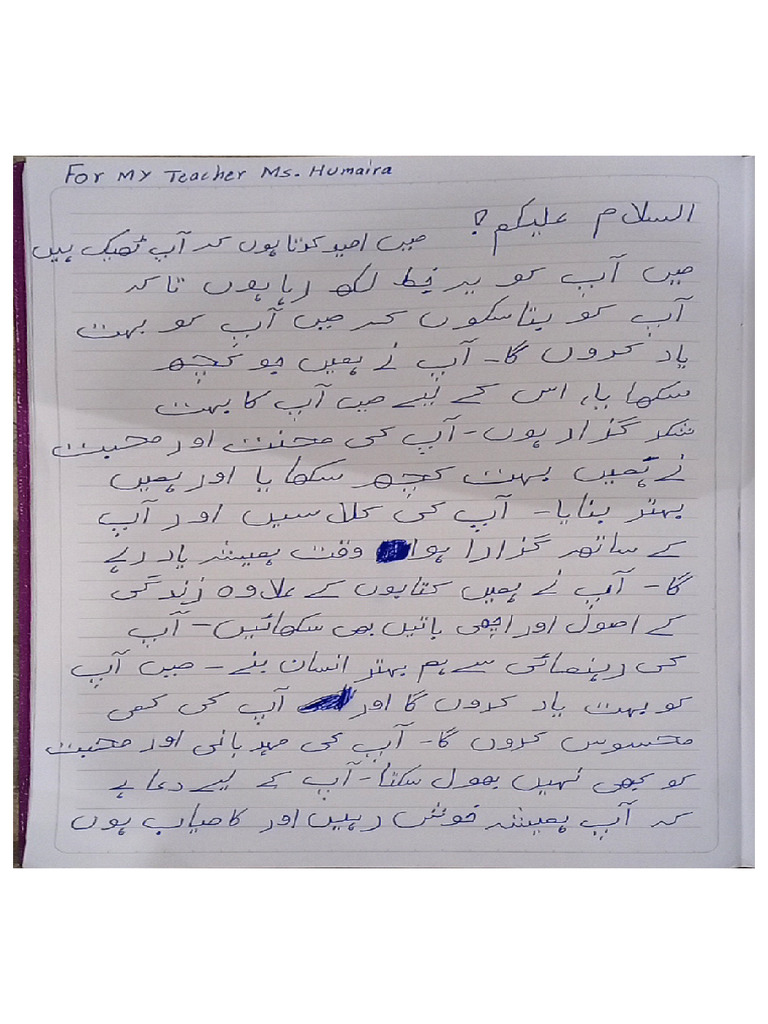 For My Teacher Ms. Humaira
السلام علیکم! میں امید کرتا ہوں کہ آپ ٹھیک ہیں
میں آپ کو یہ خط لکھ رہا ہوں تاکہ
آپ کو بتا سکوں کہ میں آپ کو بہت
یاد کروں گا۔ آپ نے ہمیں جو کچھ
سکھایا، اس کے لیے میں آپ کا بہت
شکر گزار ہوں۔ آپ کی محنت اور محبت
نے ہمیں بہت کچھ سکھایا اور ہمیں
بہتر بنایا۔ آپ کی کلاسیں اور آپ
کے ساتھ گزارا ہوا وقت ہمیشہ یاد رہے
گا۔ آپ نے ہمیں کتابوں کے علاوہ زندگی
کے اصول اور اچھی باتیں بھی سکھائیں۔ آپ
کی رہنمائی سے ہم بہتر انسان بنے۔ میں آپ
کو بہت یاد کروں گا اور آپ کی کمی
محسوس کروں گا۔ آپ کی مہربانی اور محبت
کو بھی نہیں بھول سکتا۔ آپ کے لیے دعا ہے
کہ آپ ہمیشہ خوش رہیں اور کامیاب ہوں